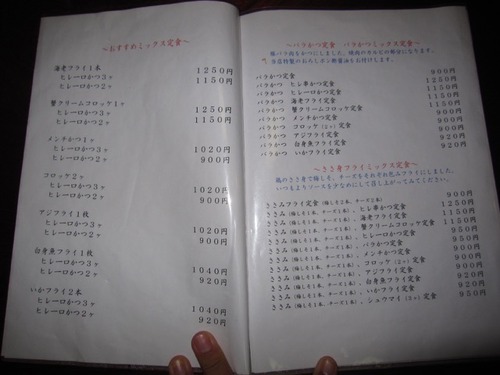 ～おすすめミックス定食～
海老フライ1本
ヒレ一口かつ3ヶ 1250円
ヒレ一口かつ2ヶ 1150円
蟹クリームコロッケ1ヶ
ヒレ一口かつ3ヶ 1250円
ヒレ一口かつ2ヶ 1150円
メンチかつ1ヶ
ヒレ一口かつ3ヶ 1020円
ヒレ一口かつ2ヶ 900円
コロッケ2ヶ
ヒレ一口かつ3ヶ 1020円
ヒレ一口かつ2ヶ 900円
アジフライ1枚
ヒレ一口かつ3ヶ 1020円
ヒレ一口かつ2ヶ 900円
白身魚フライ1枚
ヒレ一口かつ3ヶ 1040円
ヒレ一口かつ2ヶ 920円
いかフライ2本
ヒレ一口かつ3ヶ 1040円
ヒレ一口かつ2ヶ 920円
～バラかつ定食 バラかつミックス定食～
豚バラ肉をかつにしました。焼肉のカルビの部分になります。
当店特製のおろしポン酢醤油をお付けします。
バラかつ定食 900円
バラかつ ヒレ串かつ定食 1250円
バラかつ ヒレ一口かつ定食 1150円
バラかつ 海老フライ定食
バラかつ 蟹クリームコロッケ定食
バラかつ メンチかつ定食
バラかつ コロッケ(2ヶ)定食 900円
バラかつ アジフライ定食
バラかつ 白身魚フライ定食 920円
バラかつ いかフライ定食 920円
～ささ身フライミックス定食～
鶏のささ身で梅しそ、チーズをそれぞれ包みフライにしました。
いつもよりソースを少なめにして召し上がってみてください。
ささみフライ定食(梅しそ2本、チーズ2本)
ささみ(梅しそ1本、チーズ1本)、ヒレ串かつ定食
ささみ(梅しそ1本、チーズ1本)、海老フライ定食
ささみ(梅しそ1本、チーズ1本)、蟹クリームコロッケ定食
ささみ(梅しそ1本、チーズ1本)、ヒレ一口かつ定食
ささみ(梅しそ1本、チーズ1本)、バラかつ定食
ささみ(梅しそ1本、チーズ1本)、メンチかつ定食
ささみ(梅しそ1本、チーズ1本)、コロッケ(2ヶ)定食 900円
ささみ(梅しそ1本、チーズ1本)、アジフライ定食 900円
ささみ(梅しそ1本、チーズ1本)、白身魚フライ定食 920円
ささみ(梅しそ1本、チーズ1本)、いかフライ定食 920円
ささみ(梅しそ1本、チーズ1本)、シュウマイ(2ヶ)定食 950円